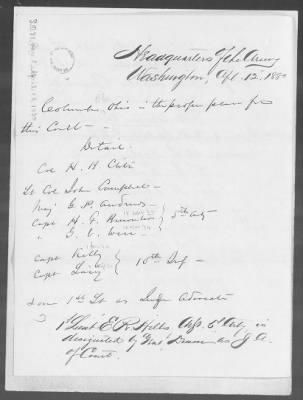 Headquarters of the Army
Washington, Apl. 12. 188
Columbus, Ohio is the proper place for
this Court —
Detail.
Col H. H.
Lt Col John Campbell —
Maj G. P. Andrews
Capt H. F.
" G. V. Weir
5th Arty
Capt Kelly
Capt
10th Inf —
some 1st Lt as Judge Advocate
1st Lieut E. R. Hills Adjt. 5th Arty is
designated by Genl as J. A.
of Court.